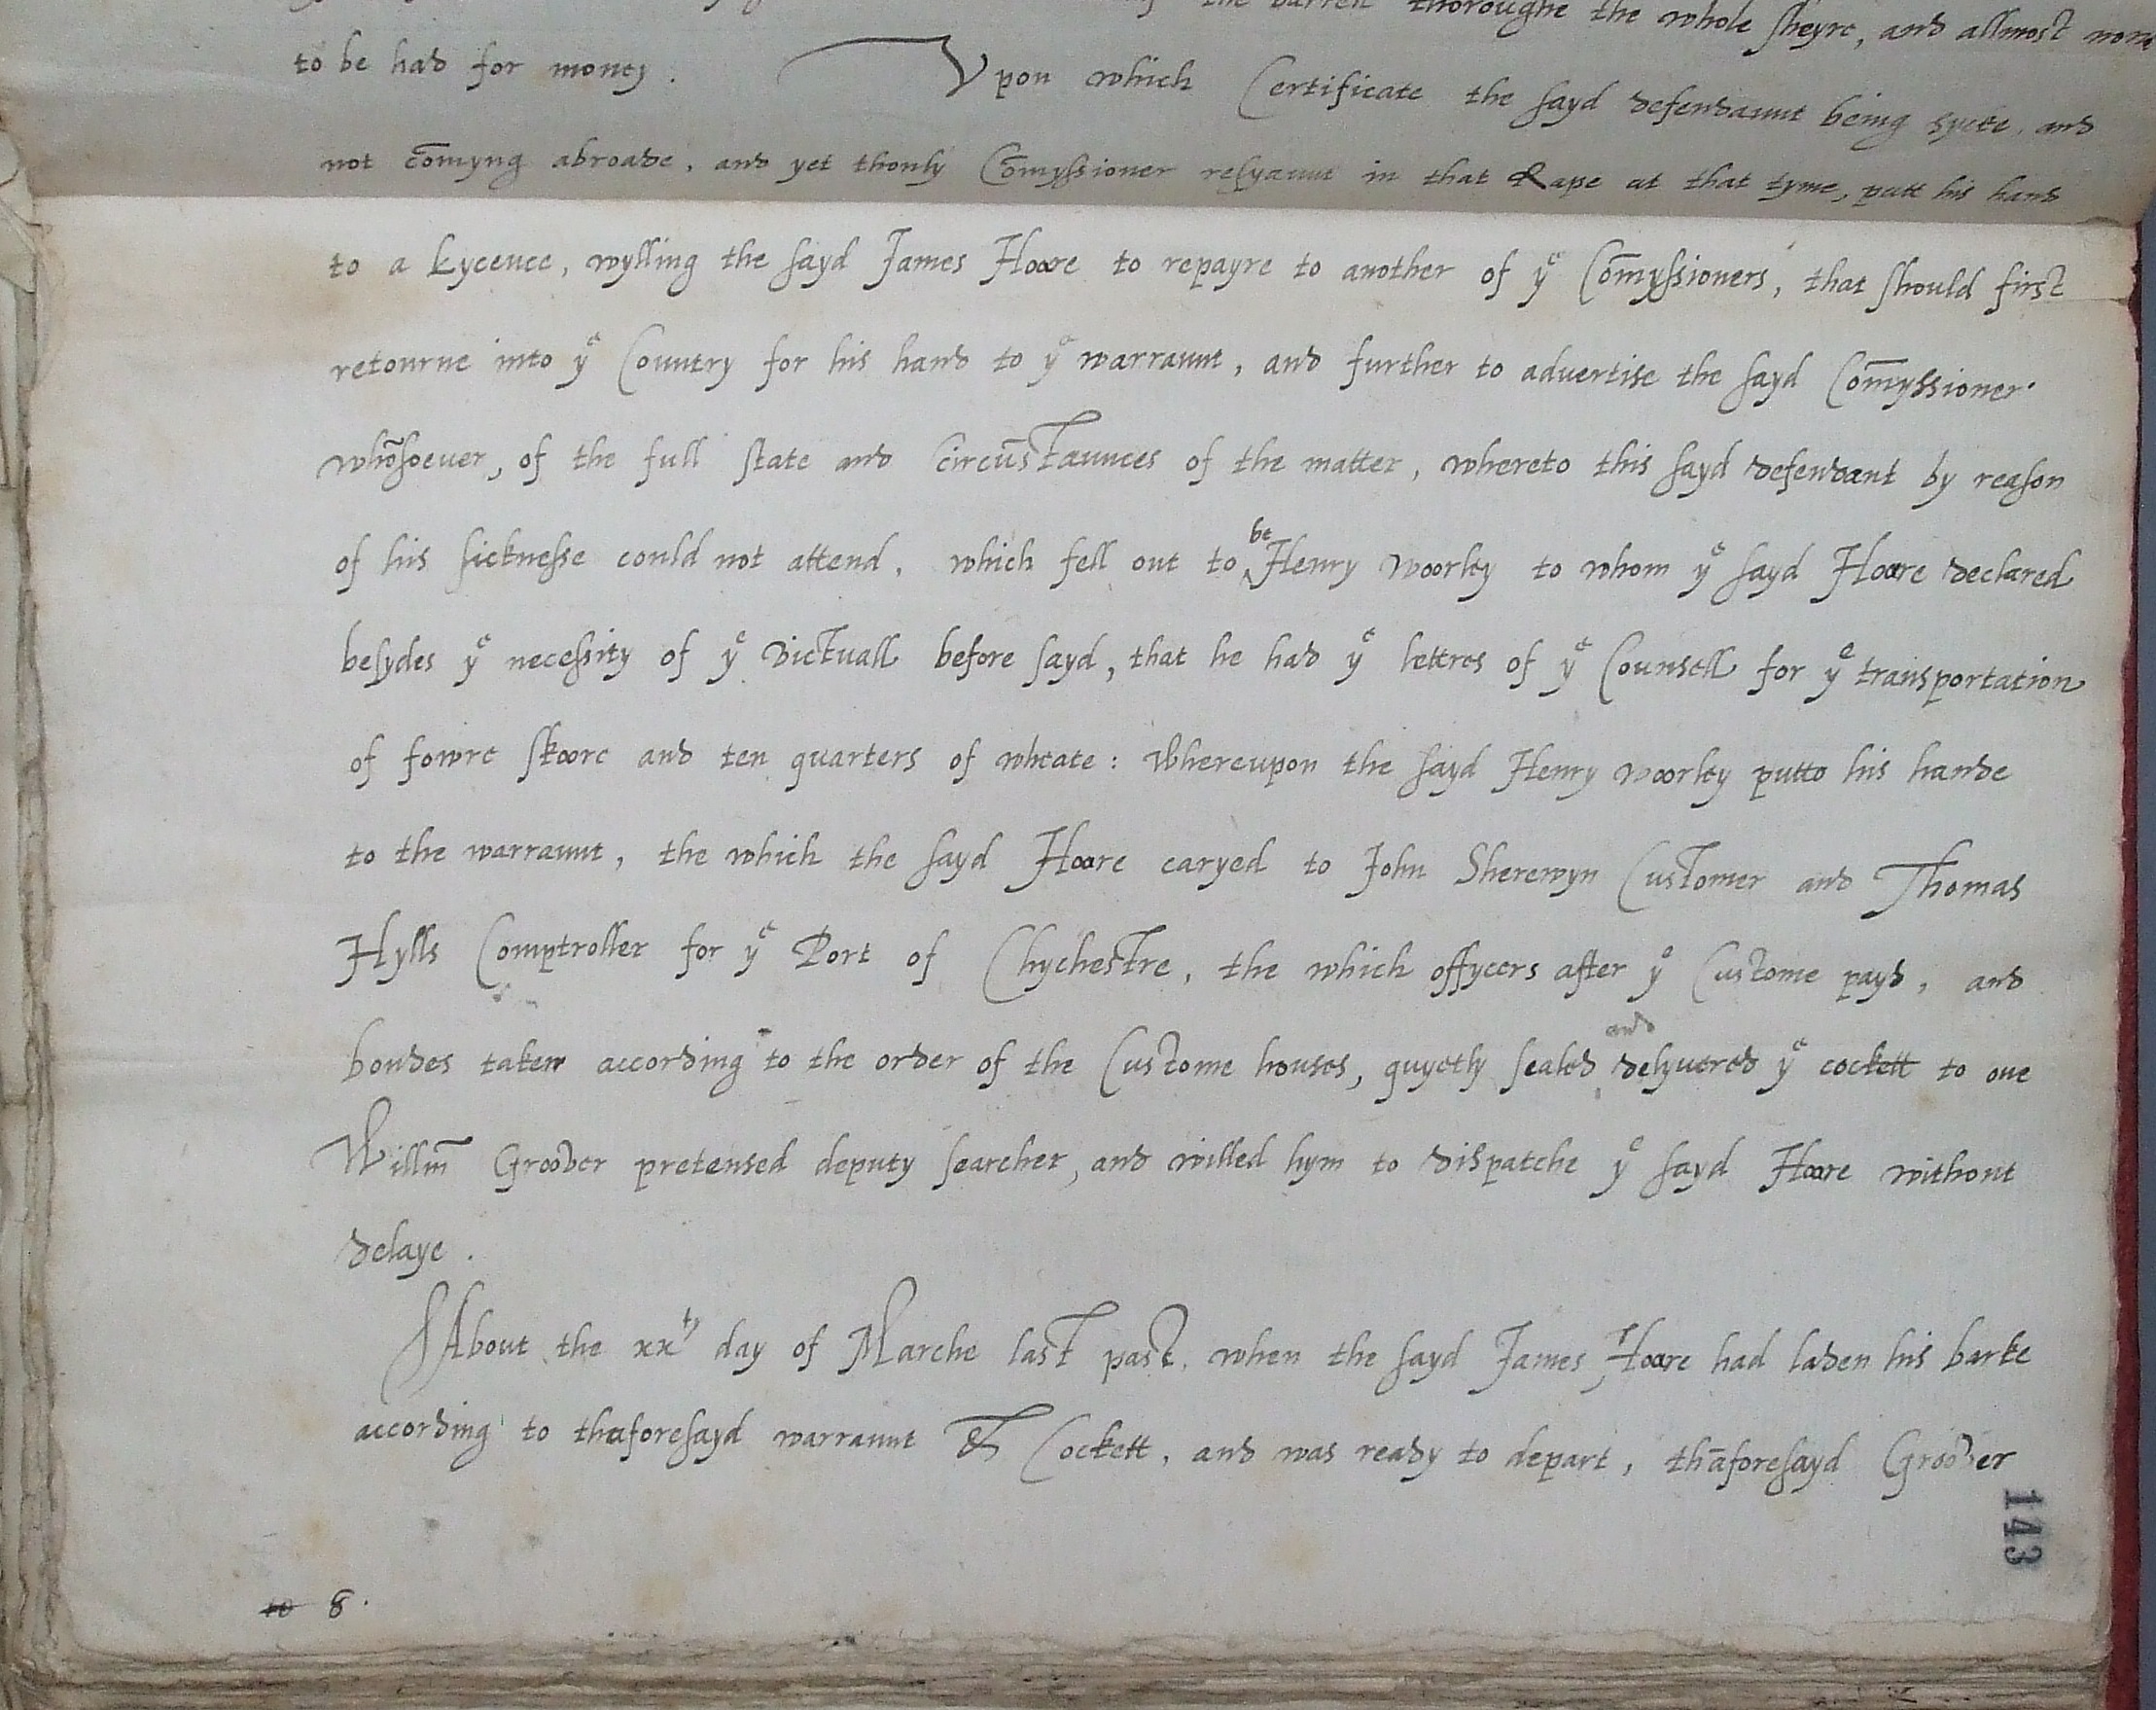 the barrell thoroughe the whole sheyre, and allmost none
to be had for money. Vpon which Certificate the sayd defendaunt being sycke, and
not com̄yng abroade, and yet thonly Com̄yssioner resyaunt in that Rape at that tyme, putt his hand
to a Lycence, wylling the sayd James Hoore to repayre to another of yᵉ Com̄yssioners, that should first
retourne into yᵉ Country for his hand to yᵉ warraunt, and further to advertise the sayd Com̄yssioner
whōsoeuer, of the full state and circūstaunces of the matter, whereto this sayd defendant by reason
of his sicknesse could not attend, which fell out to be Henry Woorley to whom yᵉ sayd Hoore declared
besydes yᵉ necessity of yᵉ victuall before sayd, that he had yᵉ lettres of yᵉ Counsell for yᵉ transportation
of fowre skoore and ten quarters of wheate: Whereupon the sayd Henry Woorley putto his hande
to the warraunt, the which the sayd Hoore caryed to John Sherewyn Customer and Thomas
Hylls Comptroller for yᵉ Port of Chychestre, the which offycers after yᵉ Custome payd, and
bondes taken according to the order of the Custome houses, quyetly sealed and delyuered yᵉ cockett to one
Willm̄ Groover pretensed deputy searcher, and willed hym to dispatche yᵉ sayd Hoore without
delaye.
About the xxᵗʸ day of Marche last past, when the sayd James Hoore had laden his barke
according to thaforesayd warraunt & Cockett, and was ready to depart, thāforesayd Groover
143
8.